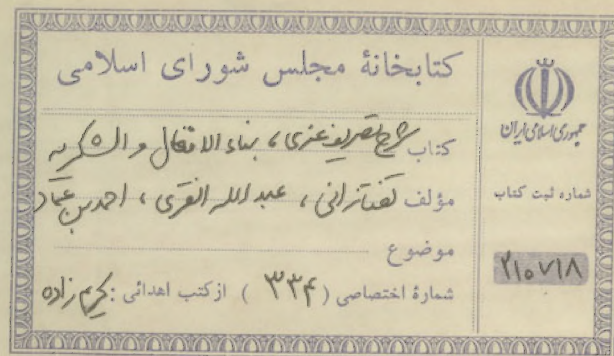 کتابخانهٔ مجلس شورای اسلامی
کتاب شرح تصریف عزی، بناء الافعال و الشکریه
مؤلف تفتازانی، عبدالله القری، احمد بن عماد
موضوع
شمارهٔ اختصاصی (۳۳۴) از کتب اهدائی: کریم زاده
جمهوری اسلامی ایران
شماره ثبت کتاب
۲۱۰۷۱۸